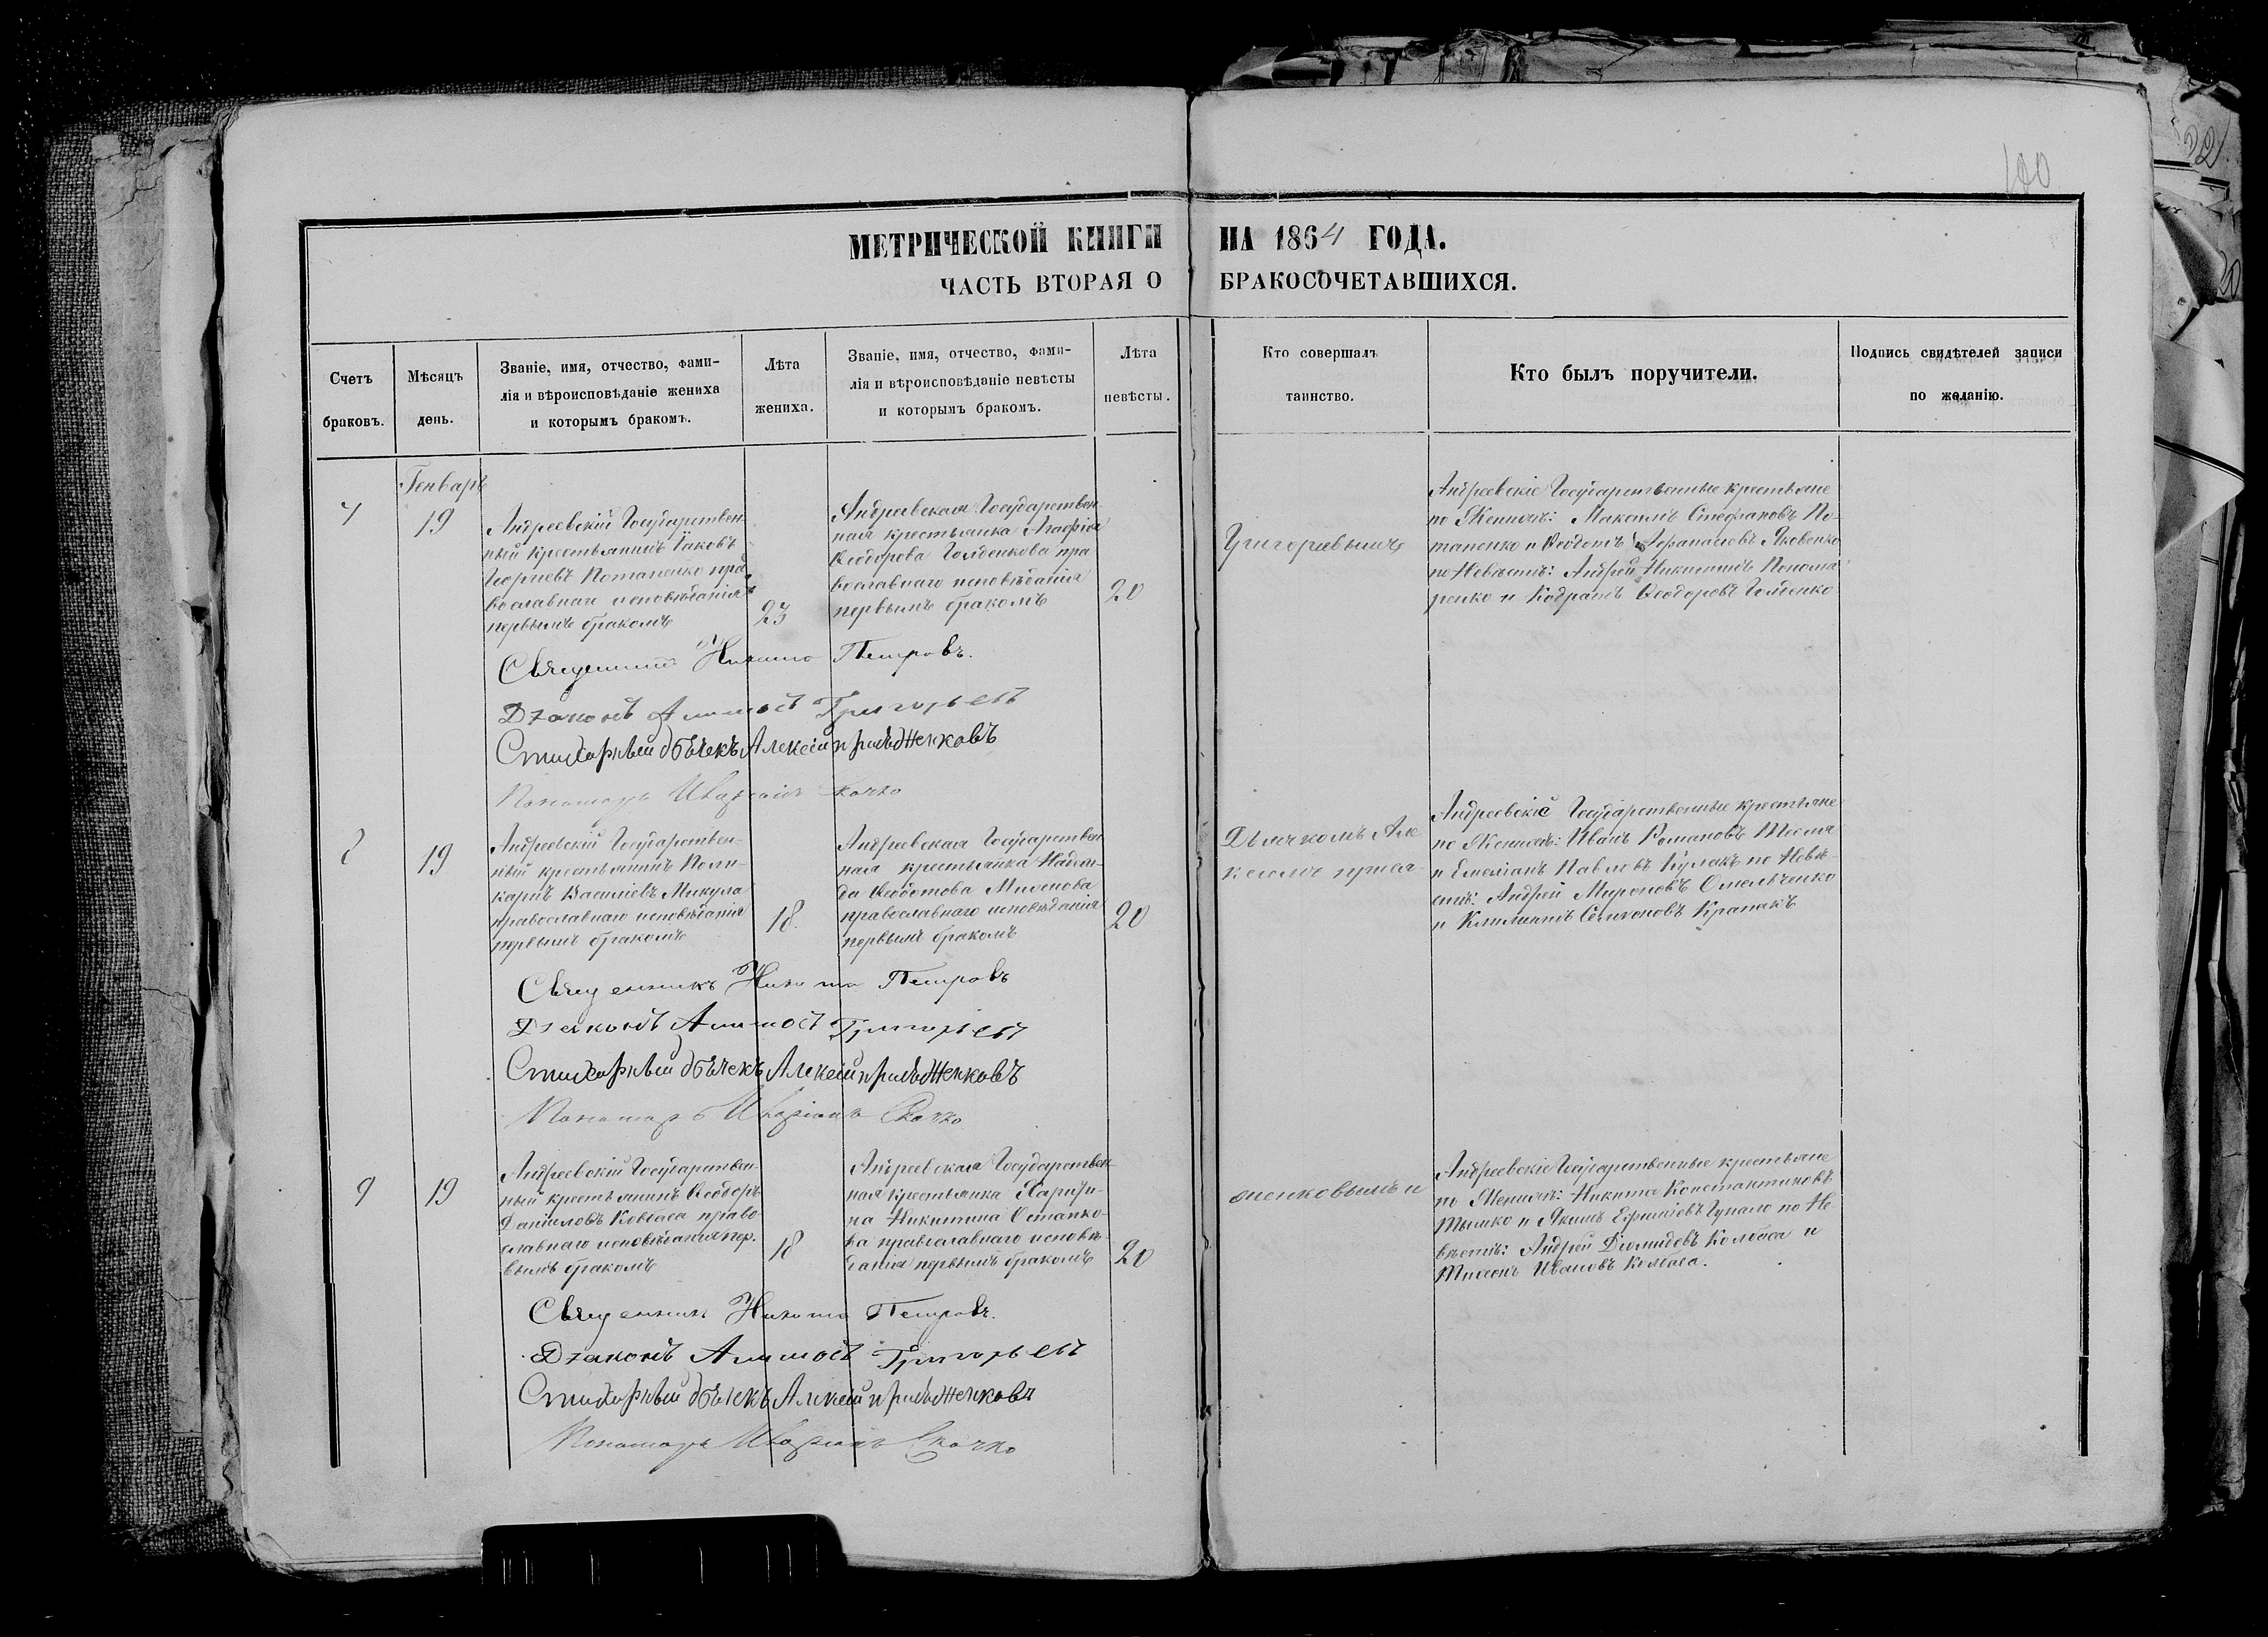 100
МЕТРИЧЕСКОЙ КНИГИ НА 1864 ГОДА.
ЧАСТЬ ВТОРАЯ О БРАКОСОЧЕТАВШИХСЯ.
Счетъ браковъ.
Мѣсяцъ день.
Званіе, имя, отчество, фами-
лія и вѣроисповѣданіе жениха
и которымъ бракомъ.
Лѣта жениха.
Званіе, имя, отчество, фами-
лія и вѣроисповѣданіе невѣсты
и которымъ бракомъ.
Лѣта невѣсты.
Кто совершалъ
таинство.
Кто былъ поручители.
Подпись свидѣтелей записи
по желанію.
Генварь
7
19
Андреевскій Государствен-
ный крестьянинъ Іаковъ
Георгіевъ Потапенко пра-
вославнаго исповѣданія
первымъ бракомъ
23
Андреевская Государствен
ная крестьянка Агафія
Ѳеодорова Гомѣнкова пра
вославнаго исповѣданія
первымъ бракомъ
20
Григорьевымъ
Андреевскіе Государственные крестьяне
по Женихѣ: Максимъ Стефановъ По-
тапенко и Ѳедотъ Афанасіевъ Яковенко
по Невѣстѣ: Андрей Никитинъ Понома
ренко и Кодратъ Ѳеодоровъ Гоменко
Священникъ Никита Петровъ.
Діаконъ Аммосъ Григорьевъ
Стихарный дьячекъ Алексій
Пономарь Скачко
8
19
Андреевскій Государствен-
ный крестьянинъ Поли-
карпъ Василіевъ Микула
православнаго исповѣданія
первымъ бракомъ
18.
Андреевская Государствен
ная крестьянка Надеж-
да Ѳедотова
православнаго исповѣданія
первымъ бракомъ
20
Дьячкомъ Але
ксѣемъ
Андреевскіе Государственные крестьяне
по Женихѣ: Иванъ Романовъ
и Емеліанъ Павловъ Кулакъ по Невѣ-
стѣ: Андрей Мироновъ Омельченко
и Климентъ Крапакъ
Священникъ Никита Петровъ
Діаконъ Аммосъ Григорьевъ
Стихарный дьячекъ Алексій
Пономарь Скачко
9
19
Андреевскій Государствен-
ный крестьянинъ Ѳеодоръ
Даніиловъ Ковбаса право-
славнаго исповѣданія пер-
вымъ бракомъ
18
Андреевская Государствен-
ная крестьянка Харити-
на Никитина Остапко-
ва православнаго исповѣ-
данія первымъ бракомъ
20
женковымъ и
Андреевскіе Государственные крестьяне
по Женихѣ: Никита Константиновъ
Тымко и Якимъ Ефиміевъ Чупало по Не
вѣстѣ: Андрей Діомидовъ Колбаса и
Ивановъ Колбаса.
Священникъ Никита Петровъ.
Діаконъ Аммосъ Григорьевъ
Стихарный дьячекъ Алексій
Пономарь Скачко